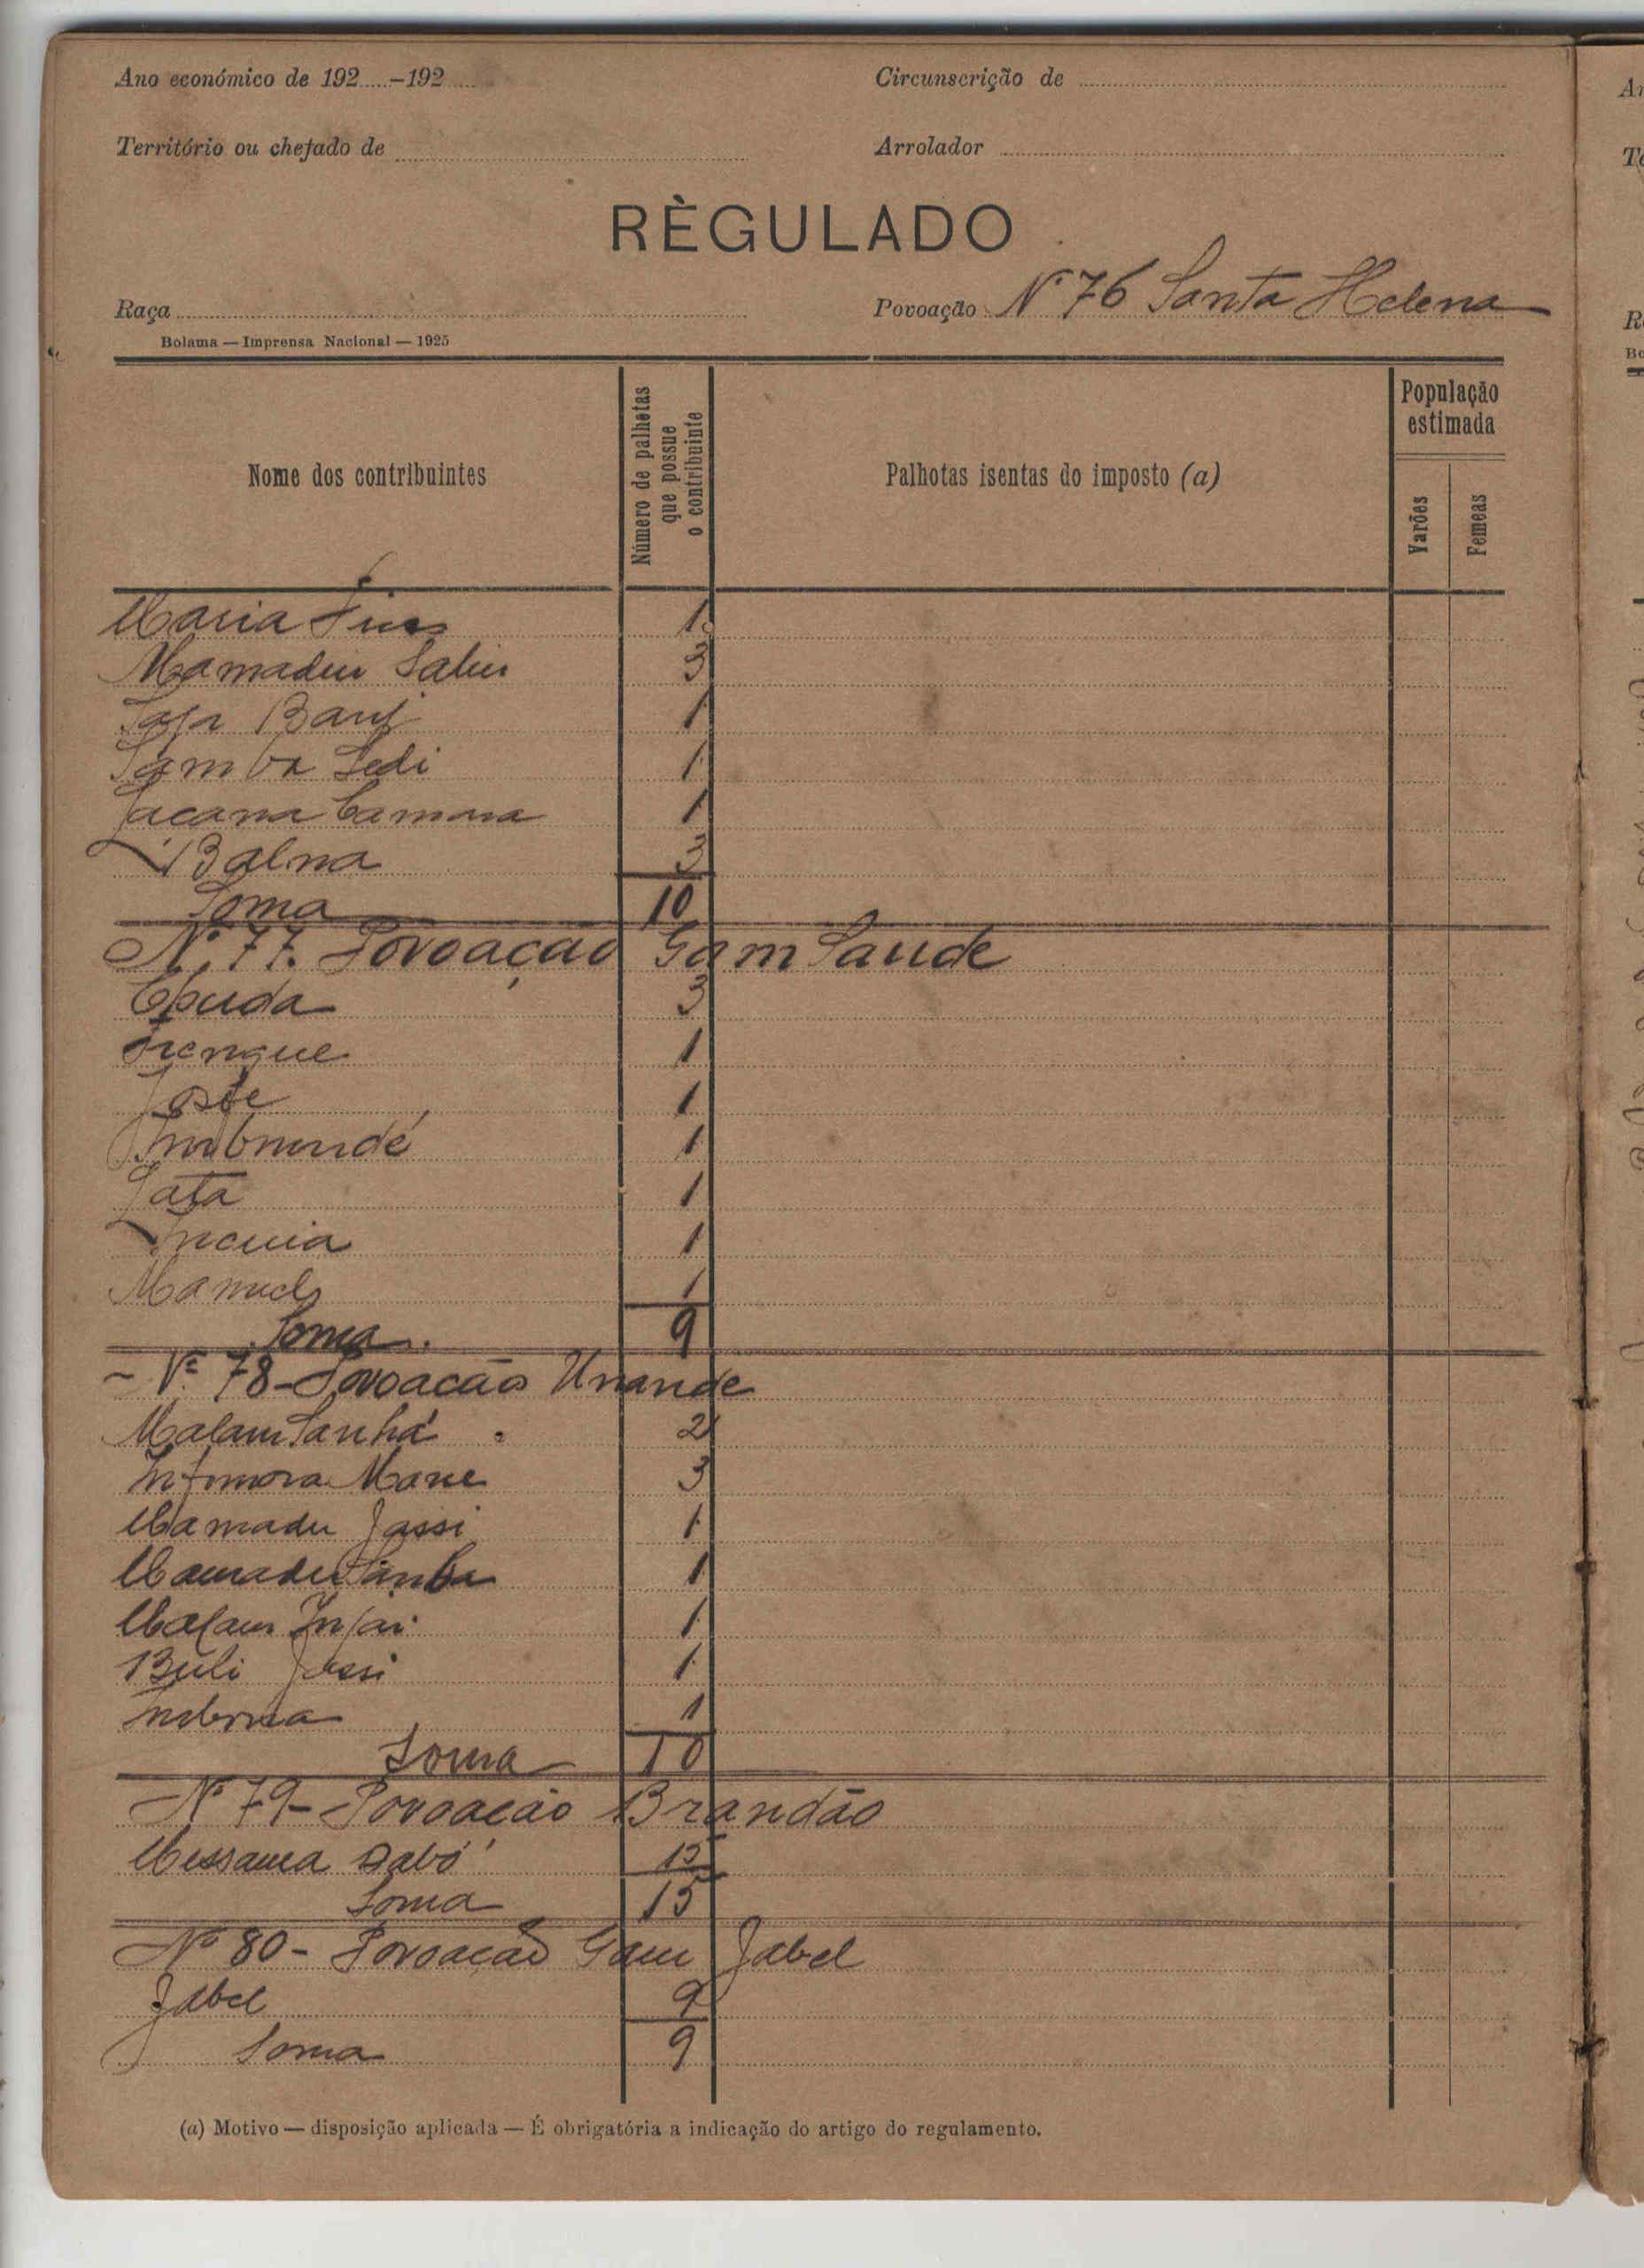 Ano económico de 192.....-192.....
Circunscrição de
Território ou chefado de
Arrolador
RÈGULADO
Raça
Povoação Nº 76 Santa Helena
Bolama — Imprensa Nacional — 1925
Nome dos contribuintes
Número de palhotas que possue o contribuinte
Palhotas isentas do imposto (a)
População estimada
Varões
Femeas
Maria 1
Mamadu Saliu 3
1
Samba Sedi 1
Lacana Camara 1
Balna 3
Soma 10
Nº 77. Povoação Gam Saude
3
1
1
1
Lata 1
1
Manuel 1
Soma. 9
- Nº 78 - Povoacão Unande
Malam Sanhá 2
Infomora Mane 3
Mamadu Jassi 1
Mamadu Samba 1
Malam Injai 1
Buli Jassi 1
1
Soma 10
Nº 79 - Povoacão Brandão
Messama Dabó 15
Soma 15
Nº 80 - Povoação Gam Jabel
Jabel 9
Soma 9
(a) Motivo — disposição aplicada — É obrigatória a indicação do artigo do regulamento.